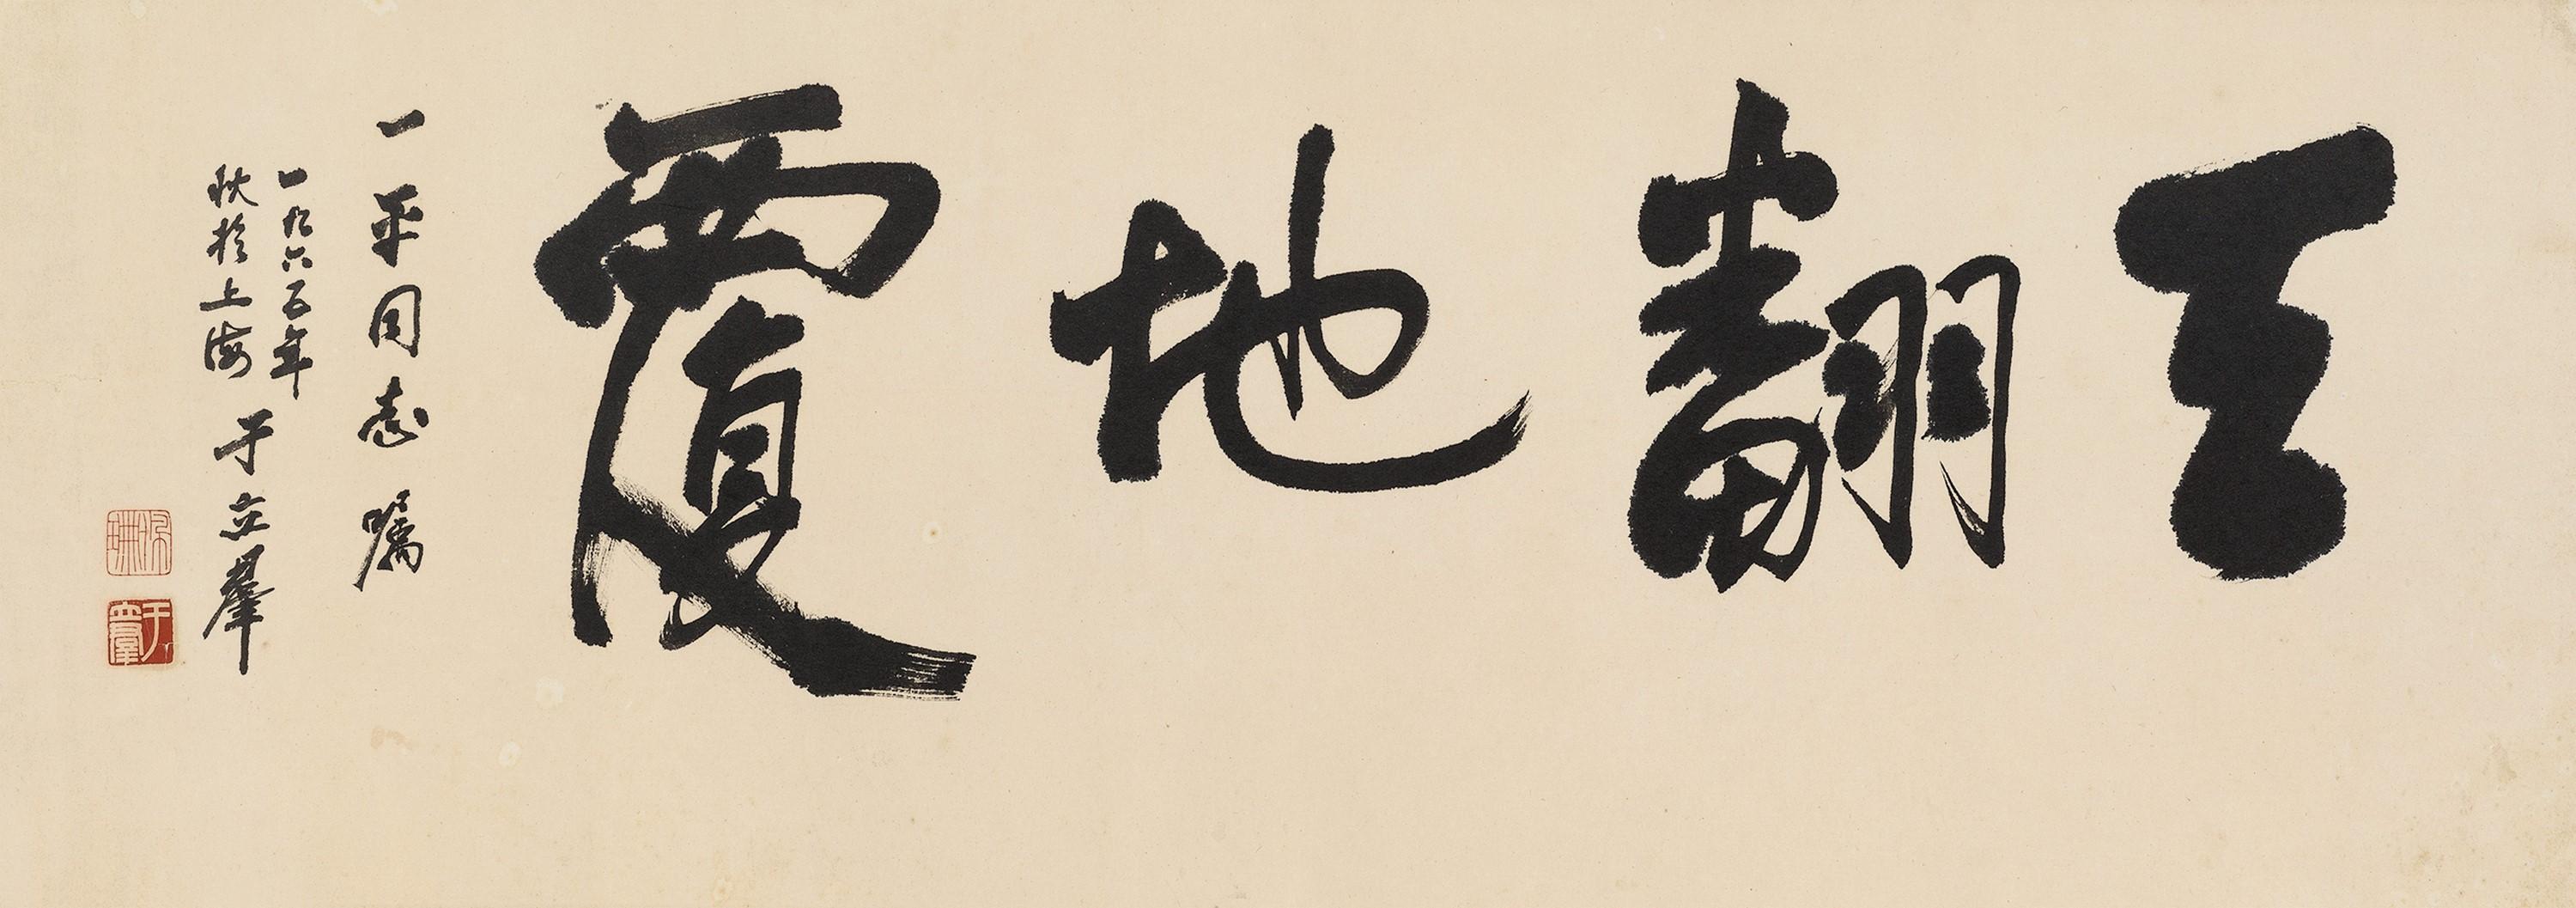 天翻地覆
一平同志嘱
一九六五年
秋於上海 于立群
于立羣